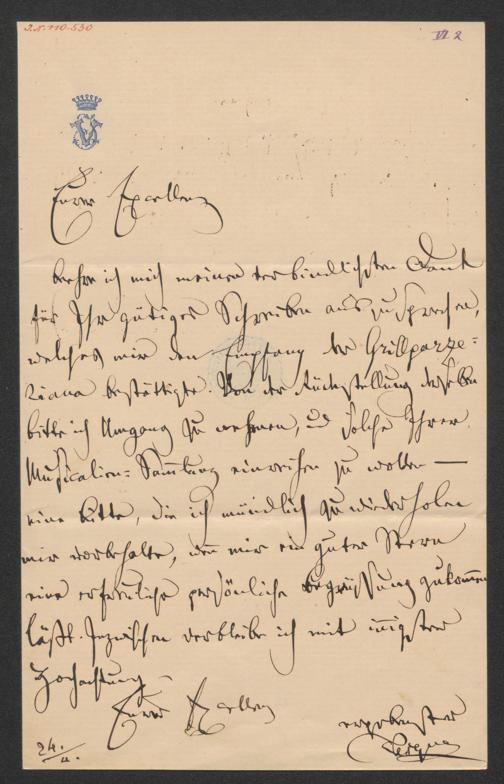 I.N. 110.530
VI 2
Eurer Excellenz
beehre ich mich meinen verbindlichsten Dank
für Ihr gütiges Schreiben auszusprechen,
welches mir den Empfang der Grillparze-
riana bestättigte. Von der Rückstellung derselben
bitte ich Umgang zu nehmen, und solche Ihrer
Musicalien-Sammlung einreihen zu wollen —
eine Bitte, die ich mündlich zu wiederholen
mir vorbehalte, wenn mir ein guter Stern
eine erfreuliche persönliche Begrüssung zukommen
läßt. Inzwischen verbleibe ich mit innigster
Hochachtung
Eurer Excellenz
ergebenster
24.